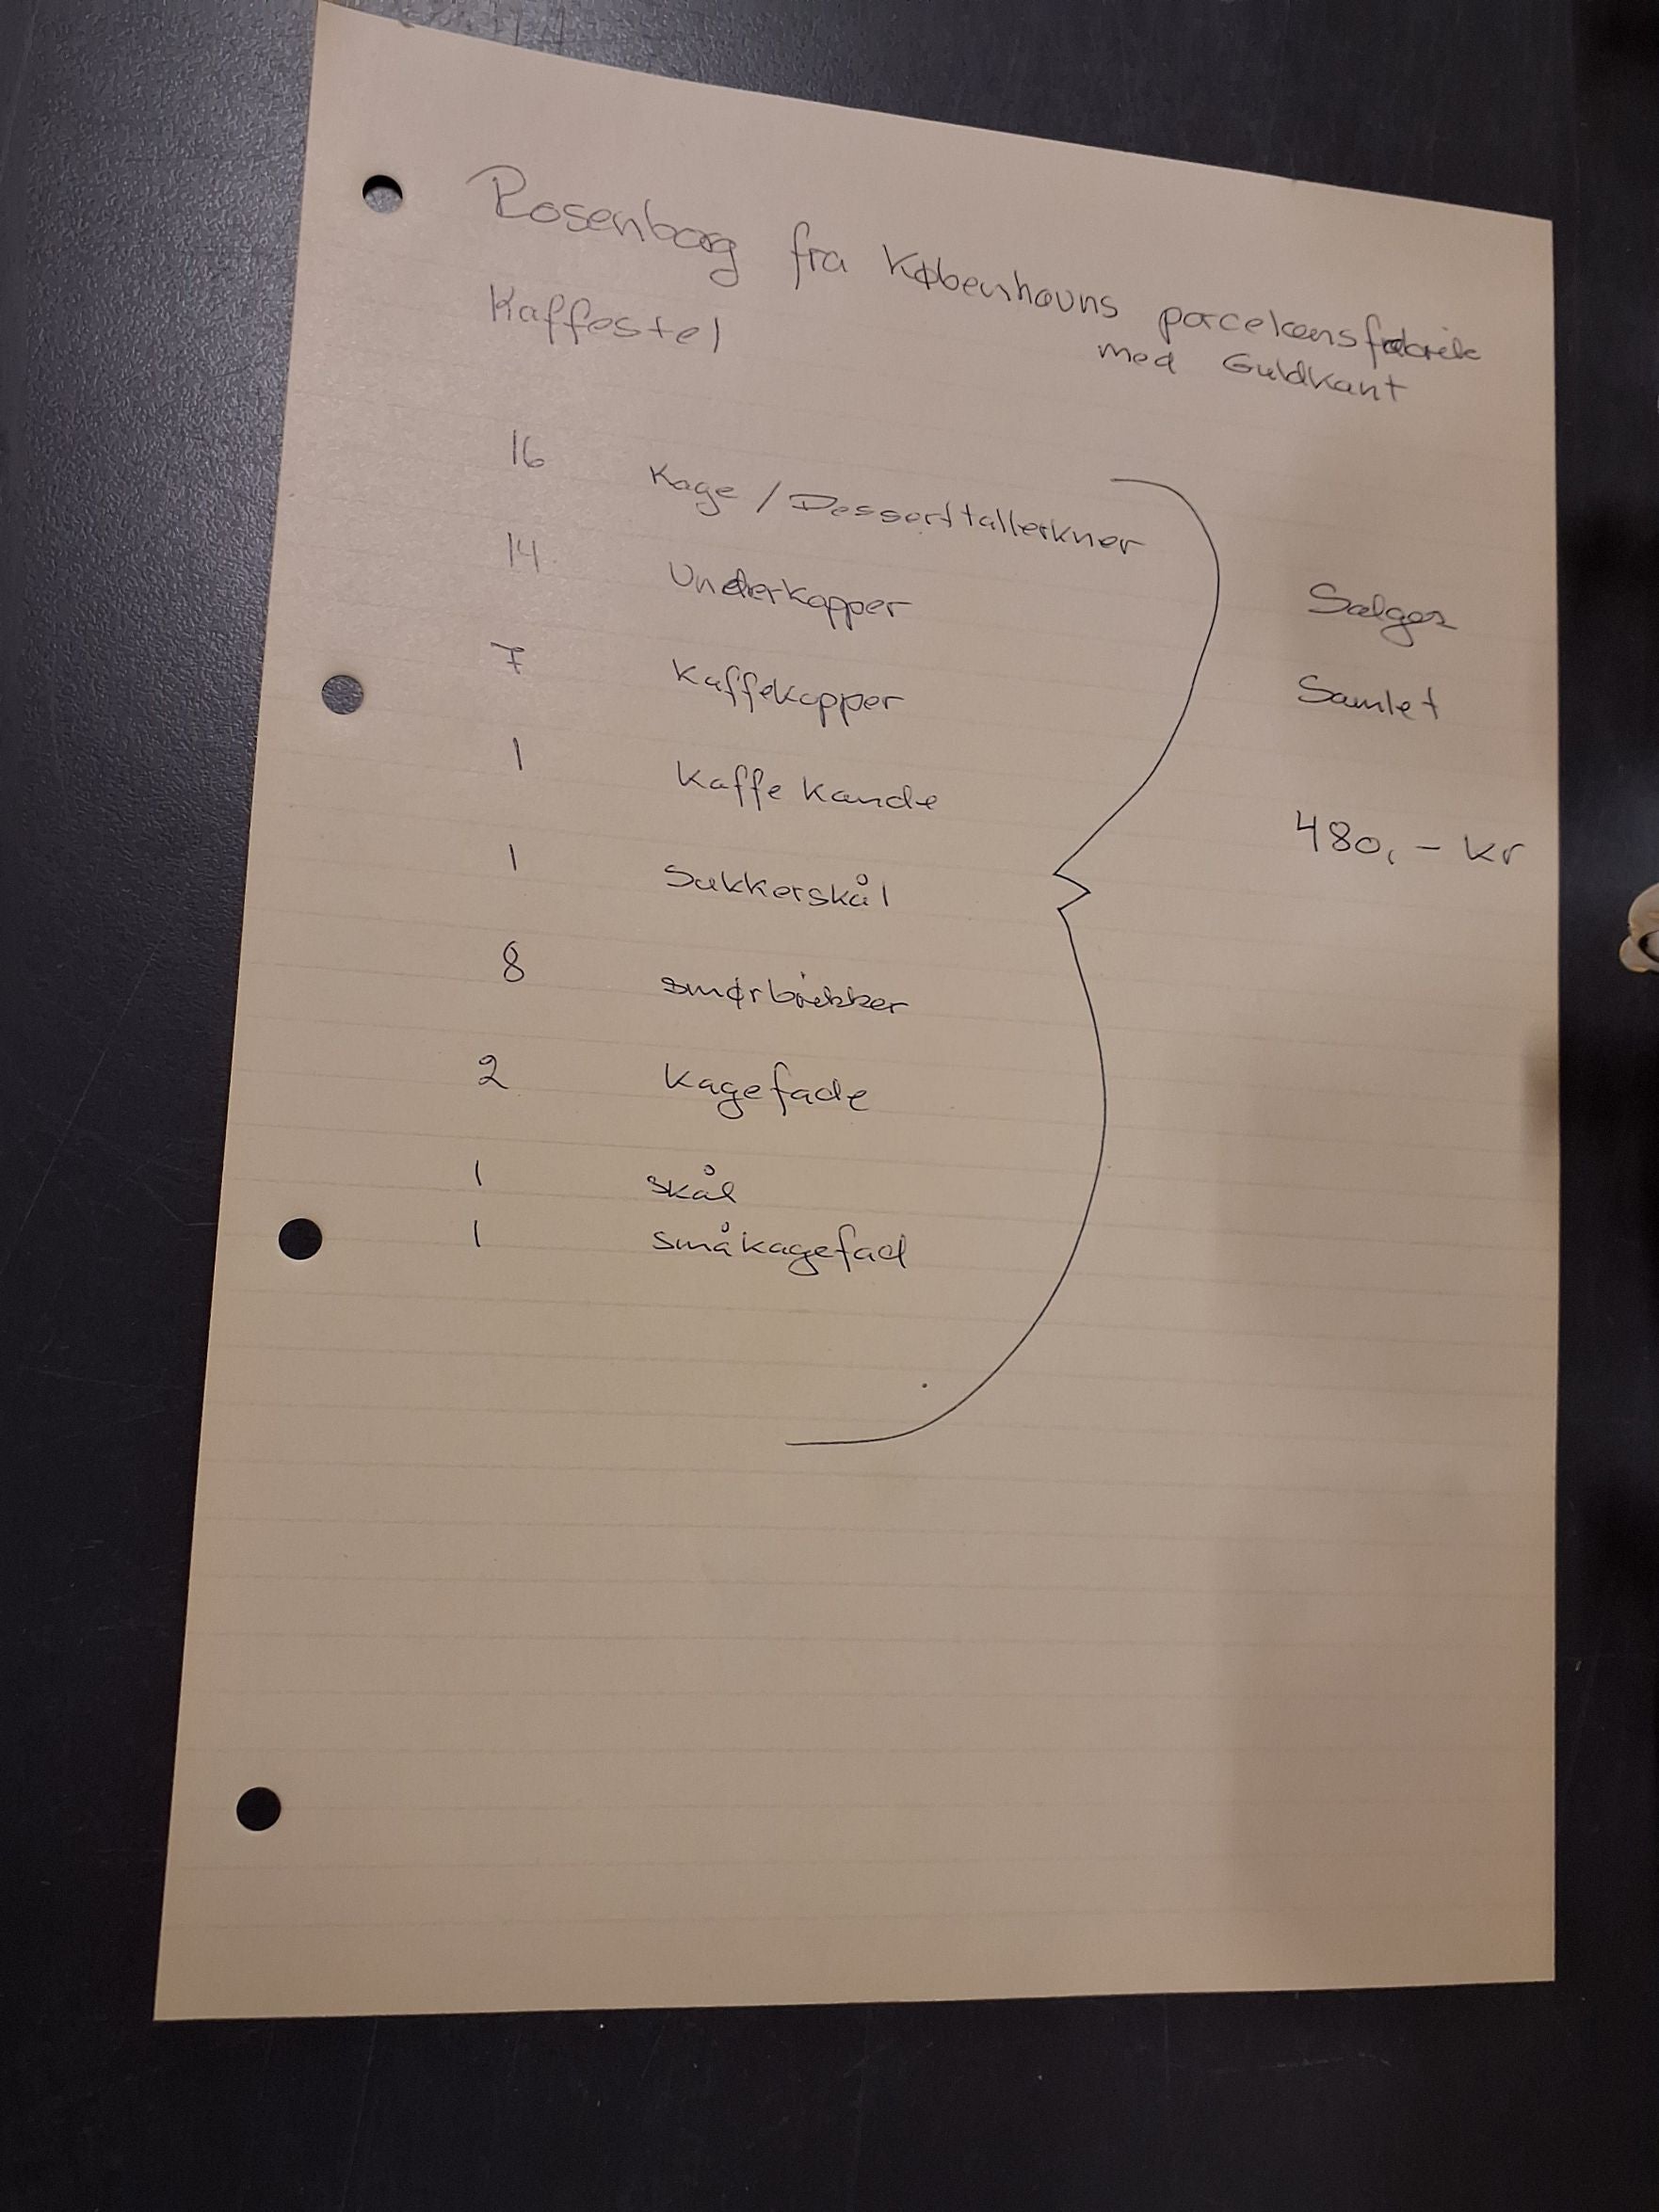 Rosenborg fra Københavns porcelænsfabrik
med Guldkant
Kaffestel
16 Kage / Desserttallerkner
14 Underkopper
7 Kaffekopper
1 Kaffe kande
1 Sukkerskål
8 smørbrikker
2 Kagefade
1 skål
1 småkagefad
Sælges
Samlet
480,- kr